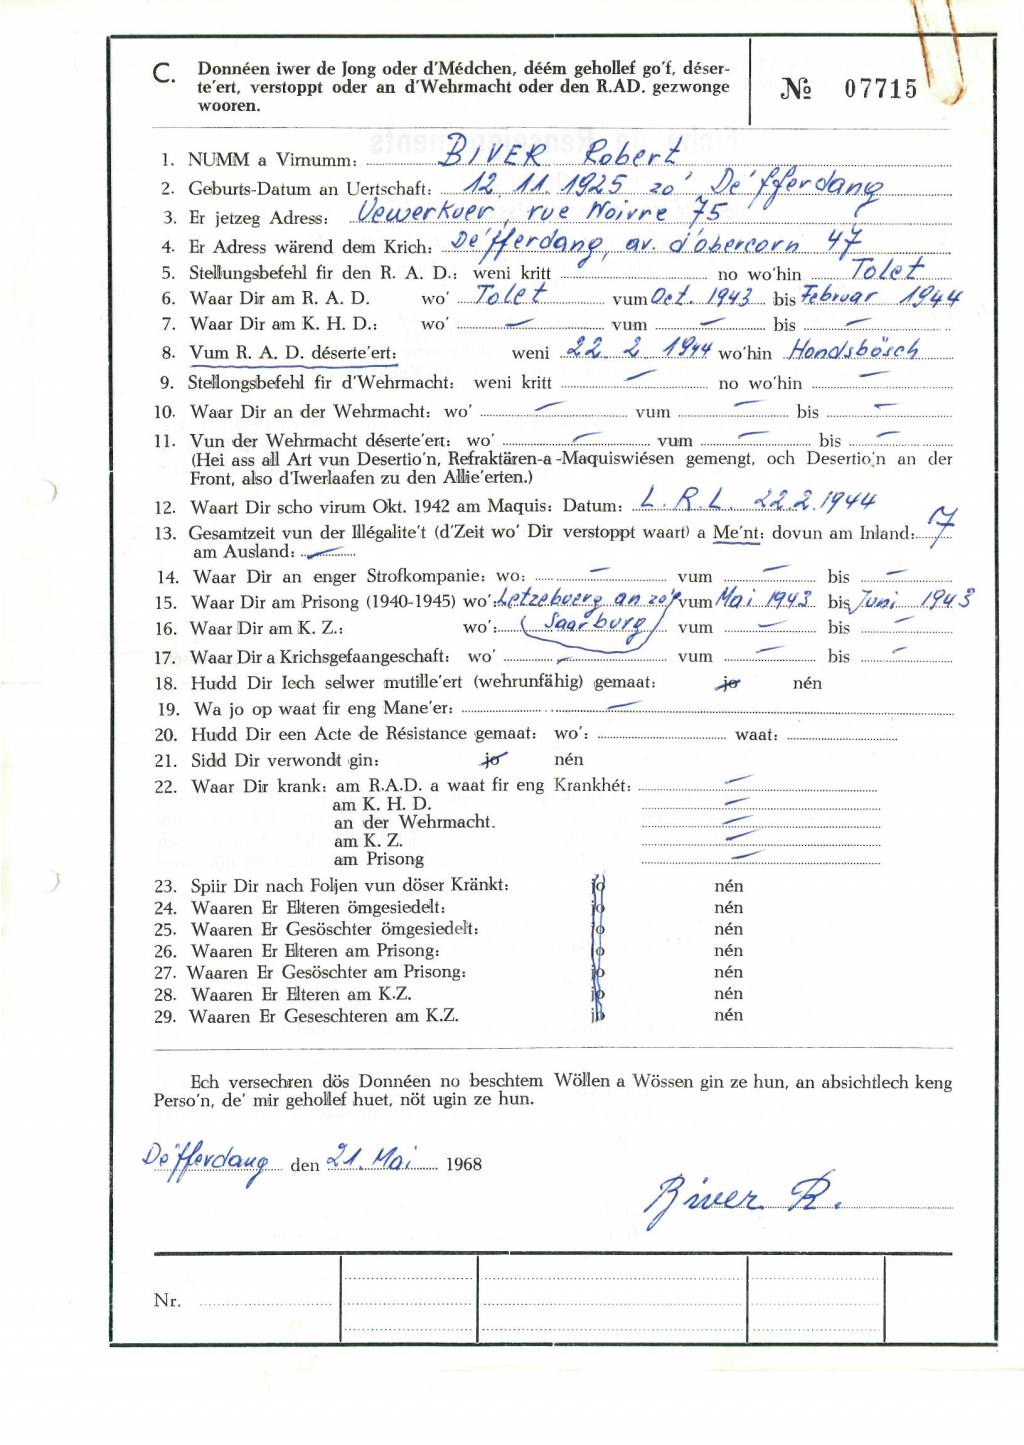 C. Donnéen iwer de Jong oder d'Médchen, déém gehollef go'f, déser-
te'ert, verstoppt oder an d'Wehrmacht oder den R.AD. gezwonge
wooren.
№ 07715
1. NUMM a Virnumm: BIVER Robert
2. Geburts-Datum an Uertschaft: 12. 11. 1925 zo' De'fferdang
3. Er jetzeg Adress: Uewerkuer, rue Woivre 75
4. Er Adress wärend dem Krich: De'fferdang, av. d'obercorn 47
5. Stellungsbefehl fir den R. A. D.: weni kritt no wo'hin Tolet
6. Waar Dir am R. A. D. wo' Tolet vum Oct. 1943 bis Februar 1944
7. Waar Dir am K. H. D.: wo' — vum — bis —
8. Vum R. A. D. déserte'ert: weni 22. 2. 1944 wo'hin Hondsbösch
9. Stellongsbefehl fir d'Wehrmacht: weni kritt — no wo'hin —
10. Waar Dir an der Wehrmacht: wo' — vum — bis —
11. Vun der Wehrmacht déserte'ert: wo' — vum — bis —
(Hei ass all Art vun Desertio'n, Refraktären-a-Maquiswiésen gemengt, och Desertio'n an der
Front, also d'Iwerlaafen zu den Allie'erten.)
12. Waart Dir scho virum Okt. 1942 am Maquis: Datum: L. R. L. 22.2.1944
13. Gesamtzeit vun der Illégalite't (d'Zeit wo' Dir verstoppt waart) a Me'nt: dovun am Inland: 7
am Ausland: —
14. Waar Dir an enger Strofkompanie: wo: — vum — bis —
15. Waar Dir am Prison (1940-1945) wo': Letzebuerg an zo' vum Mai 1943 bis Juni 1943
16. Waar Dir am K. Z.: wo': (Saarburg) vum — bis —
17. Waar Dir a Krichsgefaangeschaft: wo' — vum — bis —
18. Hudd Dir Iech selwer mutille'ert (wehrunfähig) gemaat: jo nén
19. Wa jo op waat fir eng Mane'er: —
20. Hudd Dir een Acte de Résistance gemaat: wo': waat:
21. Sidd Dir verwondt gin: jo nén
22. Waar Dir krank: am R.A.D. a waat fir eng Krankhét: —
am K. H. D. —
an der Wehrmacht. —
am K. Z. —
am Prisong —
23. Spiir Dir nach Foljen vun döser Kränkt: jo nén
24. Waaren Er Elteren ömgesiedelt: jo nén
25. Waaren Er Gesöschter ömgesiedelt: jo nén
26. Waaren Er Elteren am Prisong: jo nén
27. Waaren Er Gesöschter am Prisong: jo nén
28. Waaren Er Elteren am K.Z. jo nén
29. Waaren Er Geseschteren am K.Z. jo nén
Ech versechren dös Donnéen no beschtem Wöllen a Wössen gin ze hun, an absichtlech keng
Perso'n, de' mir gehollef huet, nöt ugin ze hun.
De'fferdang den 21. Mai 1968
Biver R.
Nr.